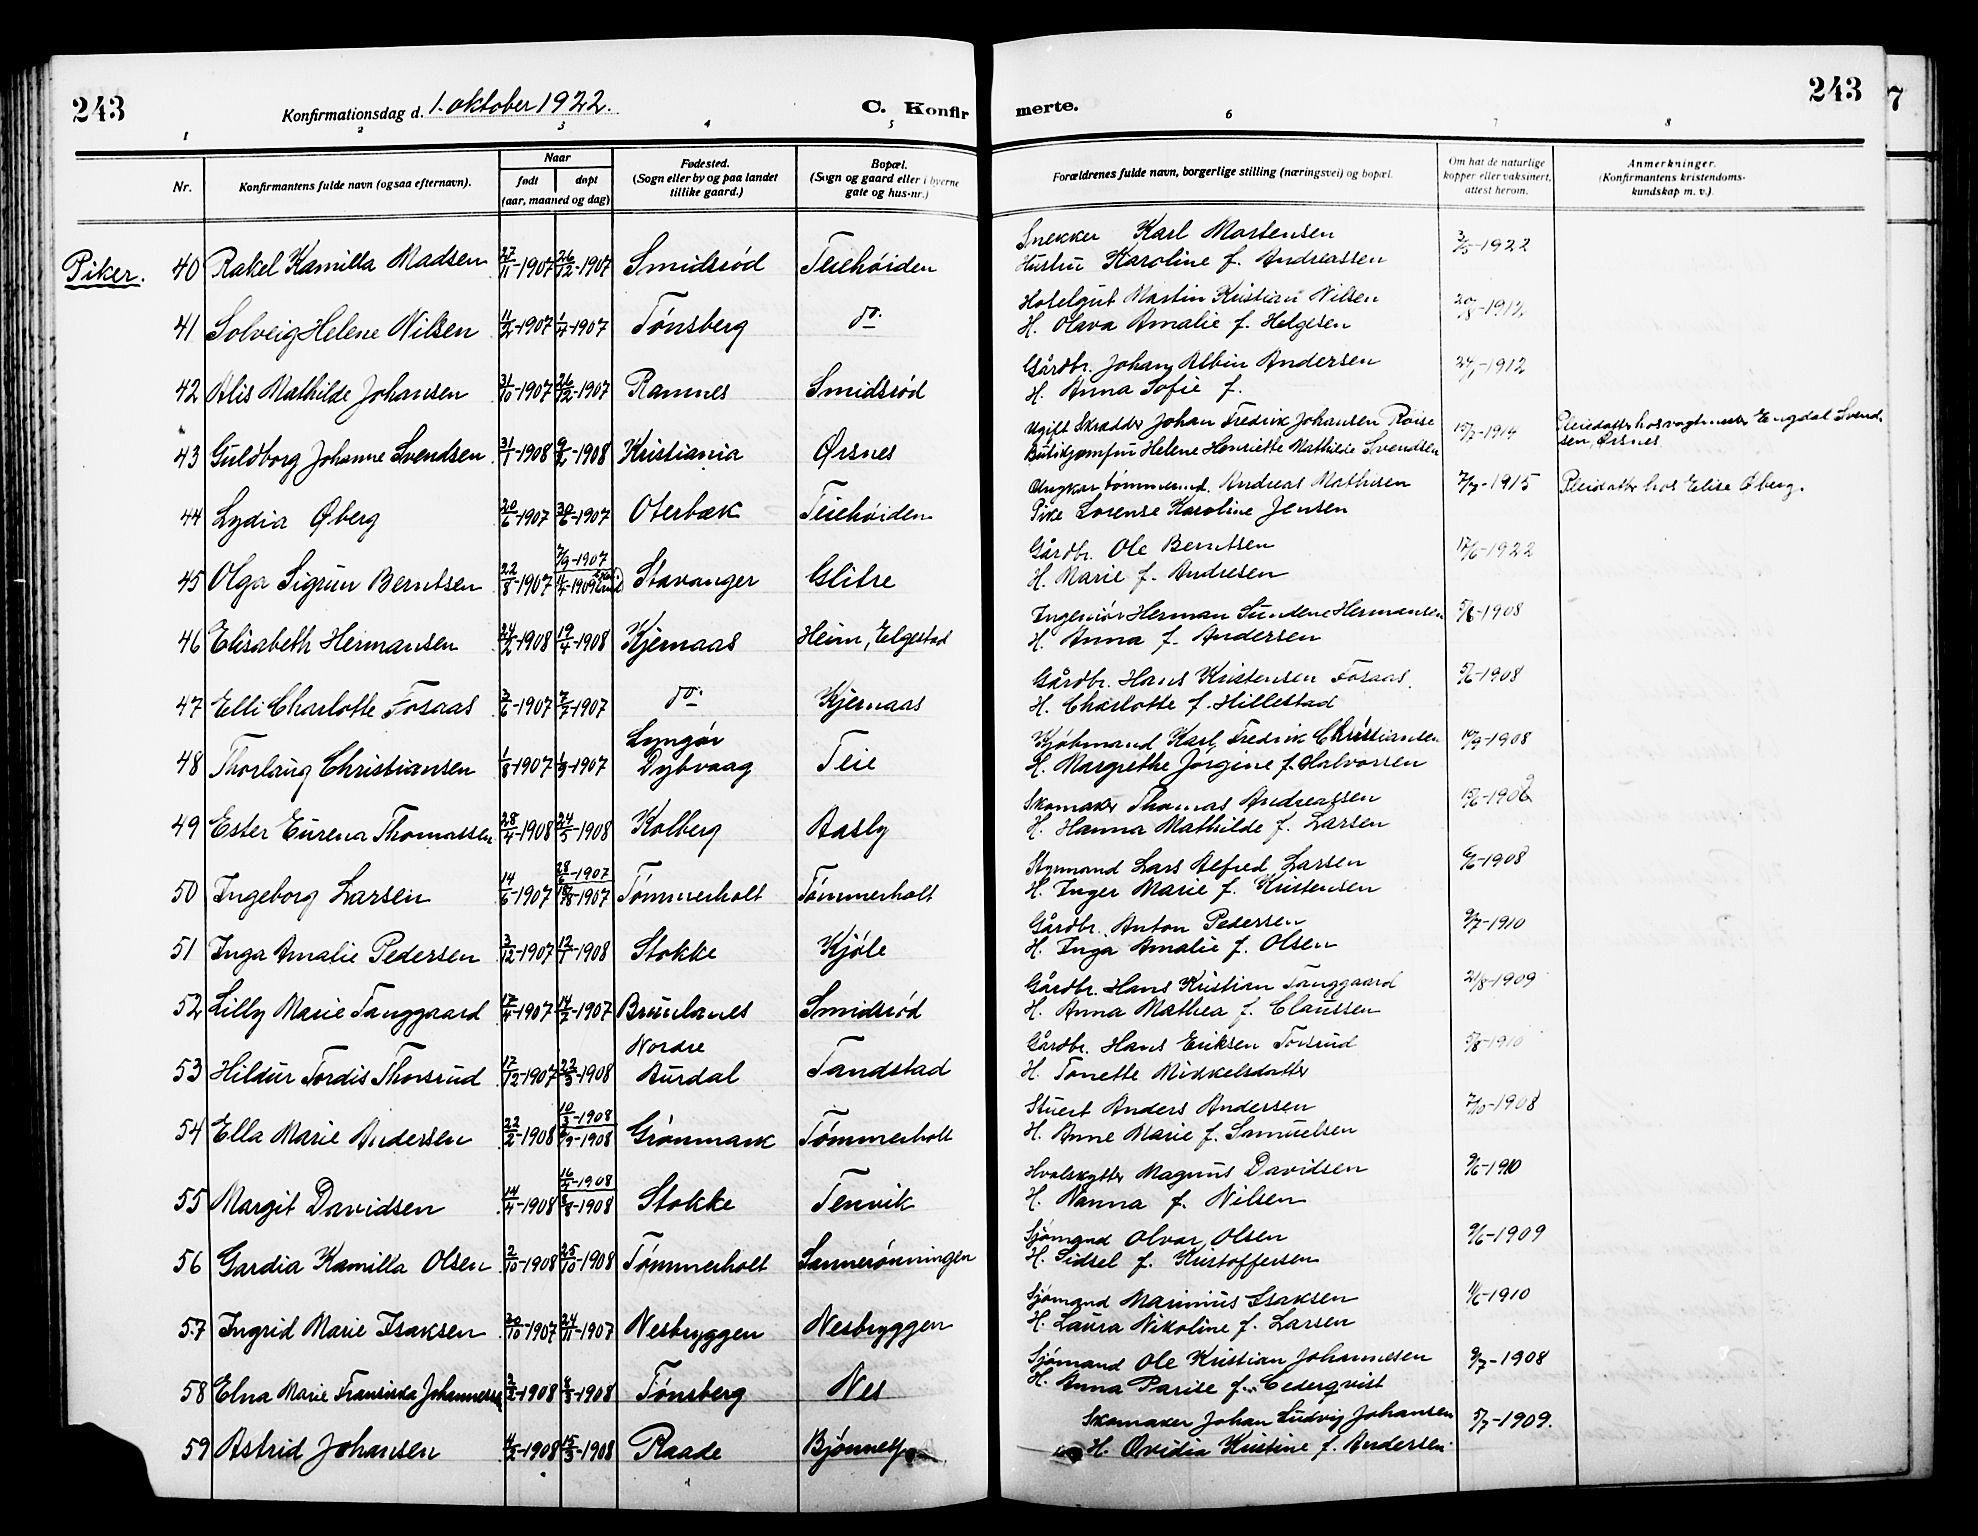 243
Konfirmationsdag d. 1. oktober 1922.
C. Konfir
merte.
243
7
1 2 3 4 5 6 7 8
Nr.
Konfirmantens fulde navn (ogsaa efternavn).
Naar
født
døpt
(aar, maaned og dag)
Fødested.
(Sogn eller by og paa landet
tillike gaard.)
Bopæl.
(Sogn og gaard eller i byerne
gate og hus-nr.)
Forældrenes fulde navn, borgerlige stilling (næringsvei) og bopæl.
Om hat de naturlige
kopper eller vaksinert,
attest herom.
Anmerkninger.
(Konfirmantens kristendoms-
kundskap m. v.)
Piker.
40 Rakel Kamilla Madsen 27/11-1907 26/12-1907 Smidsrød Teiehøiden
Snekker Karl Mortensen 3/5-1922
Hustru Karoline f. Andreassen
41 Solveig Helene Nilsen 11/2-1907 1/4-1907 Tønsberg do.
Hotelgut Martin Kristian Nilsen 20/8-1912
H. Olava Amalie f. Helgesen
42 Alis Mathilde Johansen 31/10-1907 26/12-1907 Ramnes Smidsrød
Gårdbr. Johan Albin Andersen -1912
H. Anna Sofie f.
43 Guldborg Johanne Svendsen 31/1-1908 9/2-1908 Kristiania Ørsnes
Ugift Skrædder Johan Fredrik Johansen Roise -1914 Pleiedatter hos vagtmester Engdal Svend-
Butikjomfru Helene Henriette Mathilde Svendsen sen, Ørsnes
44 Lydia Øberg 20/6-1907 30/6-1907 Oterbæk Teiehøiden
Ungkar tømmermd. Andreas Mathisen 7/7-1915 Pleiedatter hos Elise Øberg.
Pike Lorense Karoline Jensen
45 Olga Sigrun Berntsen 22/8-1907 7/9-1907 11/4-1909 Stavanger Glitre
Gårdbr. Ole Berntsen 17/6-1922
H. Marie f. Andresen
46 Elisabeth Hermansen 24/2-1908 19/4-1908 Kjernaas Heim, Elgestad
Ingeniør Herman Sundene Hermansen 5/6-1908
H. Anna f. Andersen
47 Elli Charlotte Fosaas 3/6-1907 7/7-1907 do. Kjernaas
Gårdbr. Hans Kristensen Fosaas 5/6-1908
H. Charlotte f. Hillestad
48 Thorlaug Christiansen 1/8-1907 1/9-1907 Lyngør Dybvaag Teie
Kjøbmand Karl Fredrik Christiansen -1908
H. Margrethe Jørgine f. Halvorsen
49 Ester Eurena Thomassen 28/4-1908 24/5-1908 Kolberg Aasly
Skomaker Thomas Andreassen
H. Hanna Mathilde f. Larsen
50 Ingeborg Larsen 14/6-1907 28/6-1907 18/8-1907 Tømmerholt Tømmerholt
Styrmand Lars Alfred Larsen -1908
H. Inger Marie f. Kristensen
51 Inga Amalie Pedersen 3/12-1907 12/1-1908 Stokke Kjøle
Gårdbr. Anton Pedersen 9/7-1910
H. Inga Amalie f. Olsen
52 Lilly Marie Tanggaard 17/4-1907 14/7-1907 Brunlanes Smidsrød
Gårdbr. Hans Kristian Tanggaard 21/8-1909
H. Anna Mathea f. Claussen
53 Hildur Tordis Thorsrud 17/12-1907 22/3-1908 Nordre Aurdal Tandstad
Gårdbr. Hans Eriksen Torsrud 5/8-1910
H. Tonette Mikkelsdatter
54 Ella Marie Andersen 22/2-1908 10/3-1908 6/9-1908 Grønmark Tømmerholt
Stuert Anders Andersen 7/10-1908
H. Anne Marie f. Samuelsen
55 Margit Davidsen 14/4-1908 16/4-1908 8/8-1908 Stokke Tenvik
Hvalskytter Magnus Davidsen 9/6-1910
H. Nanna f. Nilsen
56 Gardia Kamilla Olsen 2/10-1908 25/10-1908 Tømmerholt Sannerønningen
Sjømand Olvar Olsen 9/6-1909
H. Sidsel f. Kristoffersen
57 Ingrid Marie Isaksen 30/10-1907 24/11-1907 Nesbryggen Nesbryggen
Sjømand Marinius Isaksen 11/6-1910
H. Laura Nikoline f. Larsen
58 Elna Marie Fransiska Johannesen 3/2-1908 8/3-1908 Tønsberg Nes
Sjømand Ole Kristian Johannesen 9/7-1908
H. Anna Parise f. Cederqvist
59 Astrid Johansen 4/2-1908 15/3-1908 Raade Bjønnes
Skomaker Johan Ludvig Johansen 5/7-1909.
H. Ovidia Kristine f. Andersen